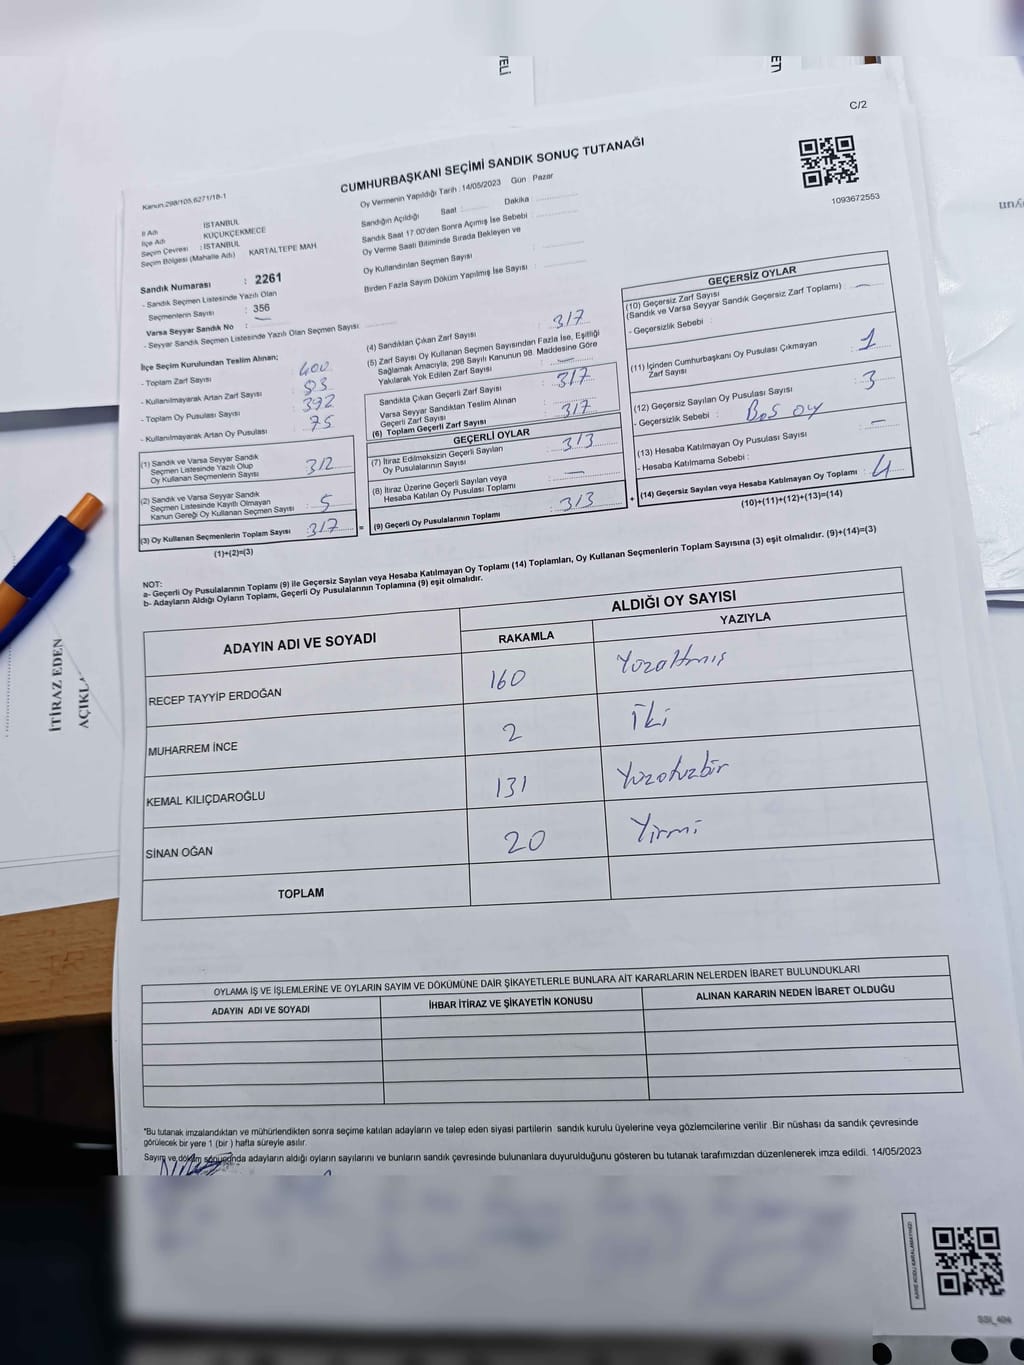 VELİ
ETİ
C/2
CUMHURBAŞKANI SEÇİMİ SANDIK SONUÇ TUTANAĞI
Kanun:298/105,6271/18-1
Oy Vermenin Yapıldığı Tarih : 14/05/2023 Gün : Pazar
1093672553
İl Adı : İSTANBUL
İlçe Adı : KÜÇÜKÇEKMECE
Seçim Çevresi : İSTANBUL
Seçim Bölgesi (Mahalle Adı) : KARTALTEPE MAH
Sandığın Açıldığı Saat : Dakika :
Sandık Saat 17:00'den Sonra Açımış İse Sebebi :
Oy Verme Saati Bitiminde Sırada Bekleyen ve
Oy Kullandırılan Seçmen Sayısı :
Birden Fazla Sayım Döküm Yapılmış İse Sayısı :
Sandık Numarası : 2261
- Sandık Seçmen Listesinde Yazılı Olan
Seçmenlerin Sayısı : 356
Varsa Seyyar Sandık No : —
- Seyyar Sandık Seçmen Listesinde Yazılı Olan Seçmen Sayısı:
İlçe Seçim Kurulundan Teslim Alınan;
- Toplam Zarf Sayısı : 400
- Kullanılmayarak Artan Zarf Sayısı : 83
- Toplam Oy Pusulası Sayısı : 392
- Kullanılmayarak Artan Oy Pusulası : 75
(1) Sandık ve Varsa Seyyar Sandık
Seçmen Listesinde Yazılı Olup
Oy Kullanan Seçmenlerin Sayısı : 312
(2) Sandık ve Varsa Seyyar Sandık
Seçmen Listesinde Kayıtlı Olmayan
Kanun Gereği Oy Kullanan Seçmen Sayısı : 5
(3) Oy Kullanan Seçmenlerin Toplam Sayısı : 317
(1)+(2)=(3)
(4) Sandıktan Çıkan Zarf Sayısı : 317
(5) Zarf Sayısı Oy Kullanan Seçmen Sayısından Fazla İse, Eşitliği
Sağlamak Amacıyla, 298 Sayılı Kanunun 98. Maddesine Göre
Yakılarak Yok Edilen Zarf Sayısı : —
Sandıkta Çıkan Geçerli Zarf Sayısı : 317
Varsa Seyyar Sandıktan Teslim Alınan
Geçerli Zarf Sayısı :
(6) Toplam Geçerli Zarf Sayısı : 317
GEÇERLİ OYLAR
(7) İtiraz Edilmeksizin Geçerli Sayılan
Oy Pusulalarının Sayısı : 313
(8) İtiraz Üzerine Geçerli Sayılan veya
Hesaba Katılan Oy Pusulası Toplamı : —
(9) Geçerli Oy Pusulalarının Toplamı : 313
GEÇERSİZ OYLAR
(10) Geçersiz Zarf Sayısı
(Sandık ve Varsa Seyyar Sandık Geçersiz Zarf Toplamı) : —
- Geçersizlik Sebebi :
(11) İçinden Cumhurbaşkanı Oy Pusulası Çıkmayan
Zarf Sayısı : 1
(12) Geçersiz Sayılan Oy Pusulası Sayısı : 3
- Geçersizlik Sebebi : Boş oy
(13) Hesaba Katılmayan Oy Pusulası Sayısı : —
- Hesaba Katılmama Sebebi :
(14) Geçersiz Sayılan veya Hesaba Katılmayan Oy Toplamı : 4
(10)+(11)+(12)+(13)=(14)
NOT:
a- Geçerli Oy Pusulalarının Toplamı (9) ile Geçersiz Sayılan veya Hesaba Katılmayan Oy Toplamı (14) Toplamları, Oy Kullanan Seçmenlerin Toplam Sayısına (3) eşit olmalıdır. (9)+(14)=(3)
b- Adayların Aldığı Oyların Toplamı, Geçerli Oy Pusulalarının Toplamına (9) eşit olmalıdır.
ADAYIN ADI VE SOYADI
ALDIĞI OY SAYISI
RAKAMLA YAZIYLA
RECEP TAYYİP ERDOĞAN 160 Yüzaltmış
MUHARREM İNCE 2 İki
KEMAL KILIÇDAROĞLU 131 Yüzotuzbir
SİNAN OĞAN 20 Yirmi
TOPLAM
OYLAMA İŞ VE İŞLEMLERİNE VE OYLARIN SAYIM VE DÖKÜMÜNE DAİR ŞİKAYETLERLE BUNLARA AİT KARARLARIN NELERDEN İBARET BULUNDUKLARI
ADAYIN ADI VE SOYADI İHBAR İTİRAZ VE ŞİKAYETİN KONUSU ALINAN KARARIN NEDEN İBARET OLDUĞU
*Bu tutanak imzalandıktan ve mühürlendikten sonra seçime katılan adayların ve talep eden siyasi partilerin sandık kurulu üyelerine veya gözlemcilerine verilir .Bir nüshası da sandık çevresinde
görülecek bir yere 1 (bir ) hafta süreyle asılır.
Sayım ve döküm sonucunda adayların aldığı oyların sayılarını ve bunların sandık çevresinde bulunanlara duyurulduğunu gösteren bu tutanak tarafımızdan düzenlenerek imza edildi. 14/05/2023
İTİRAZ EDEN